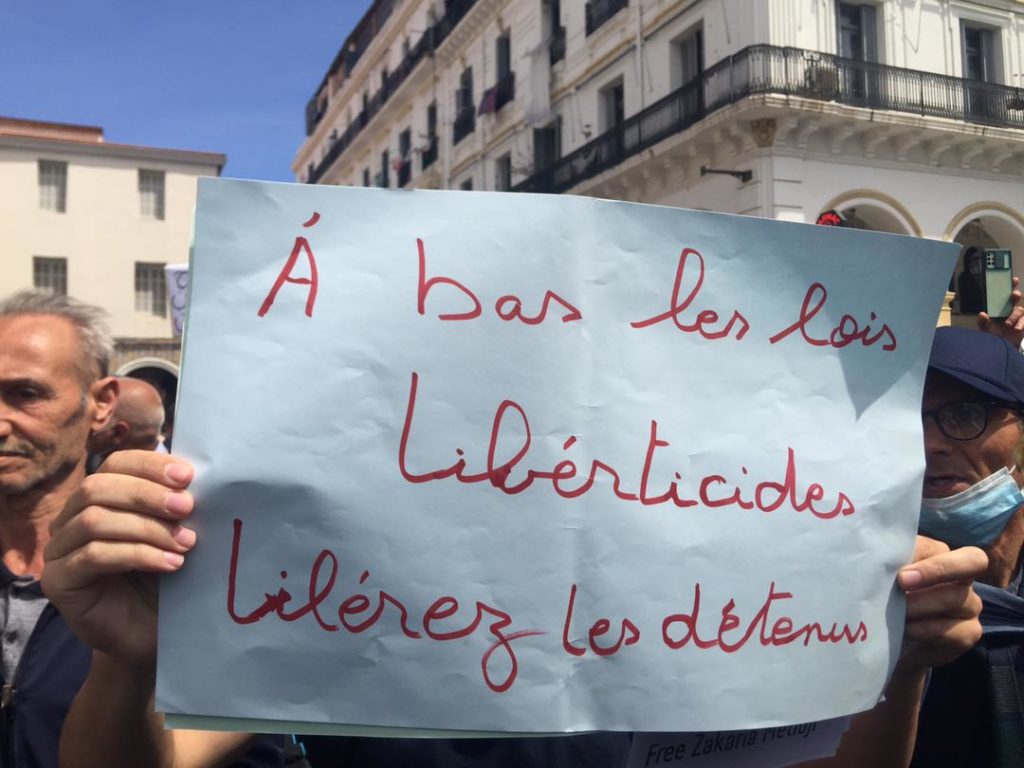 Á bas les lois
Libérticides
Libérez les détenus
Free Zakaria